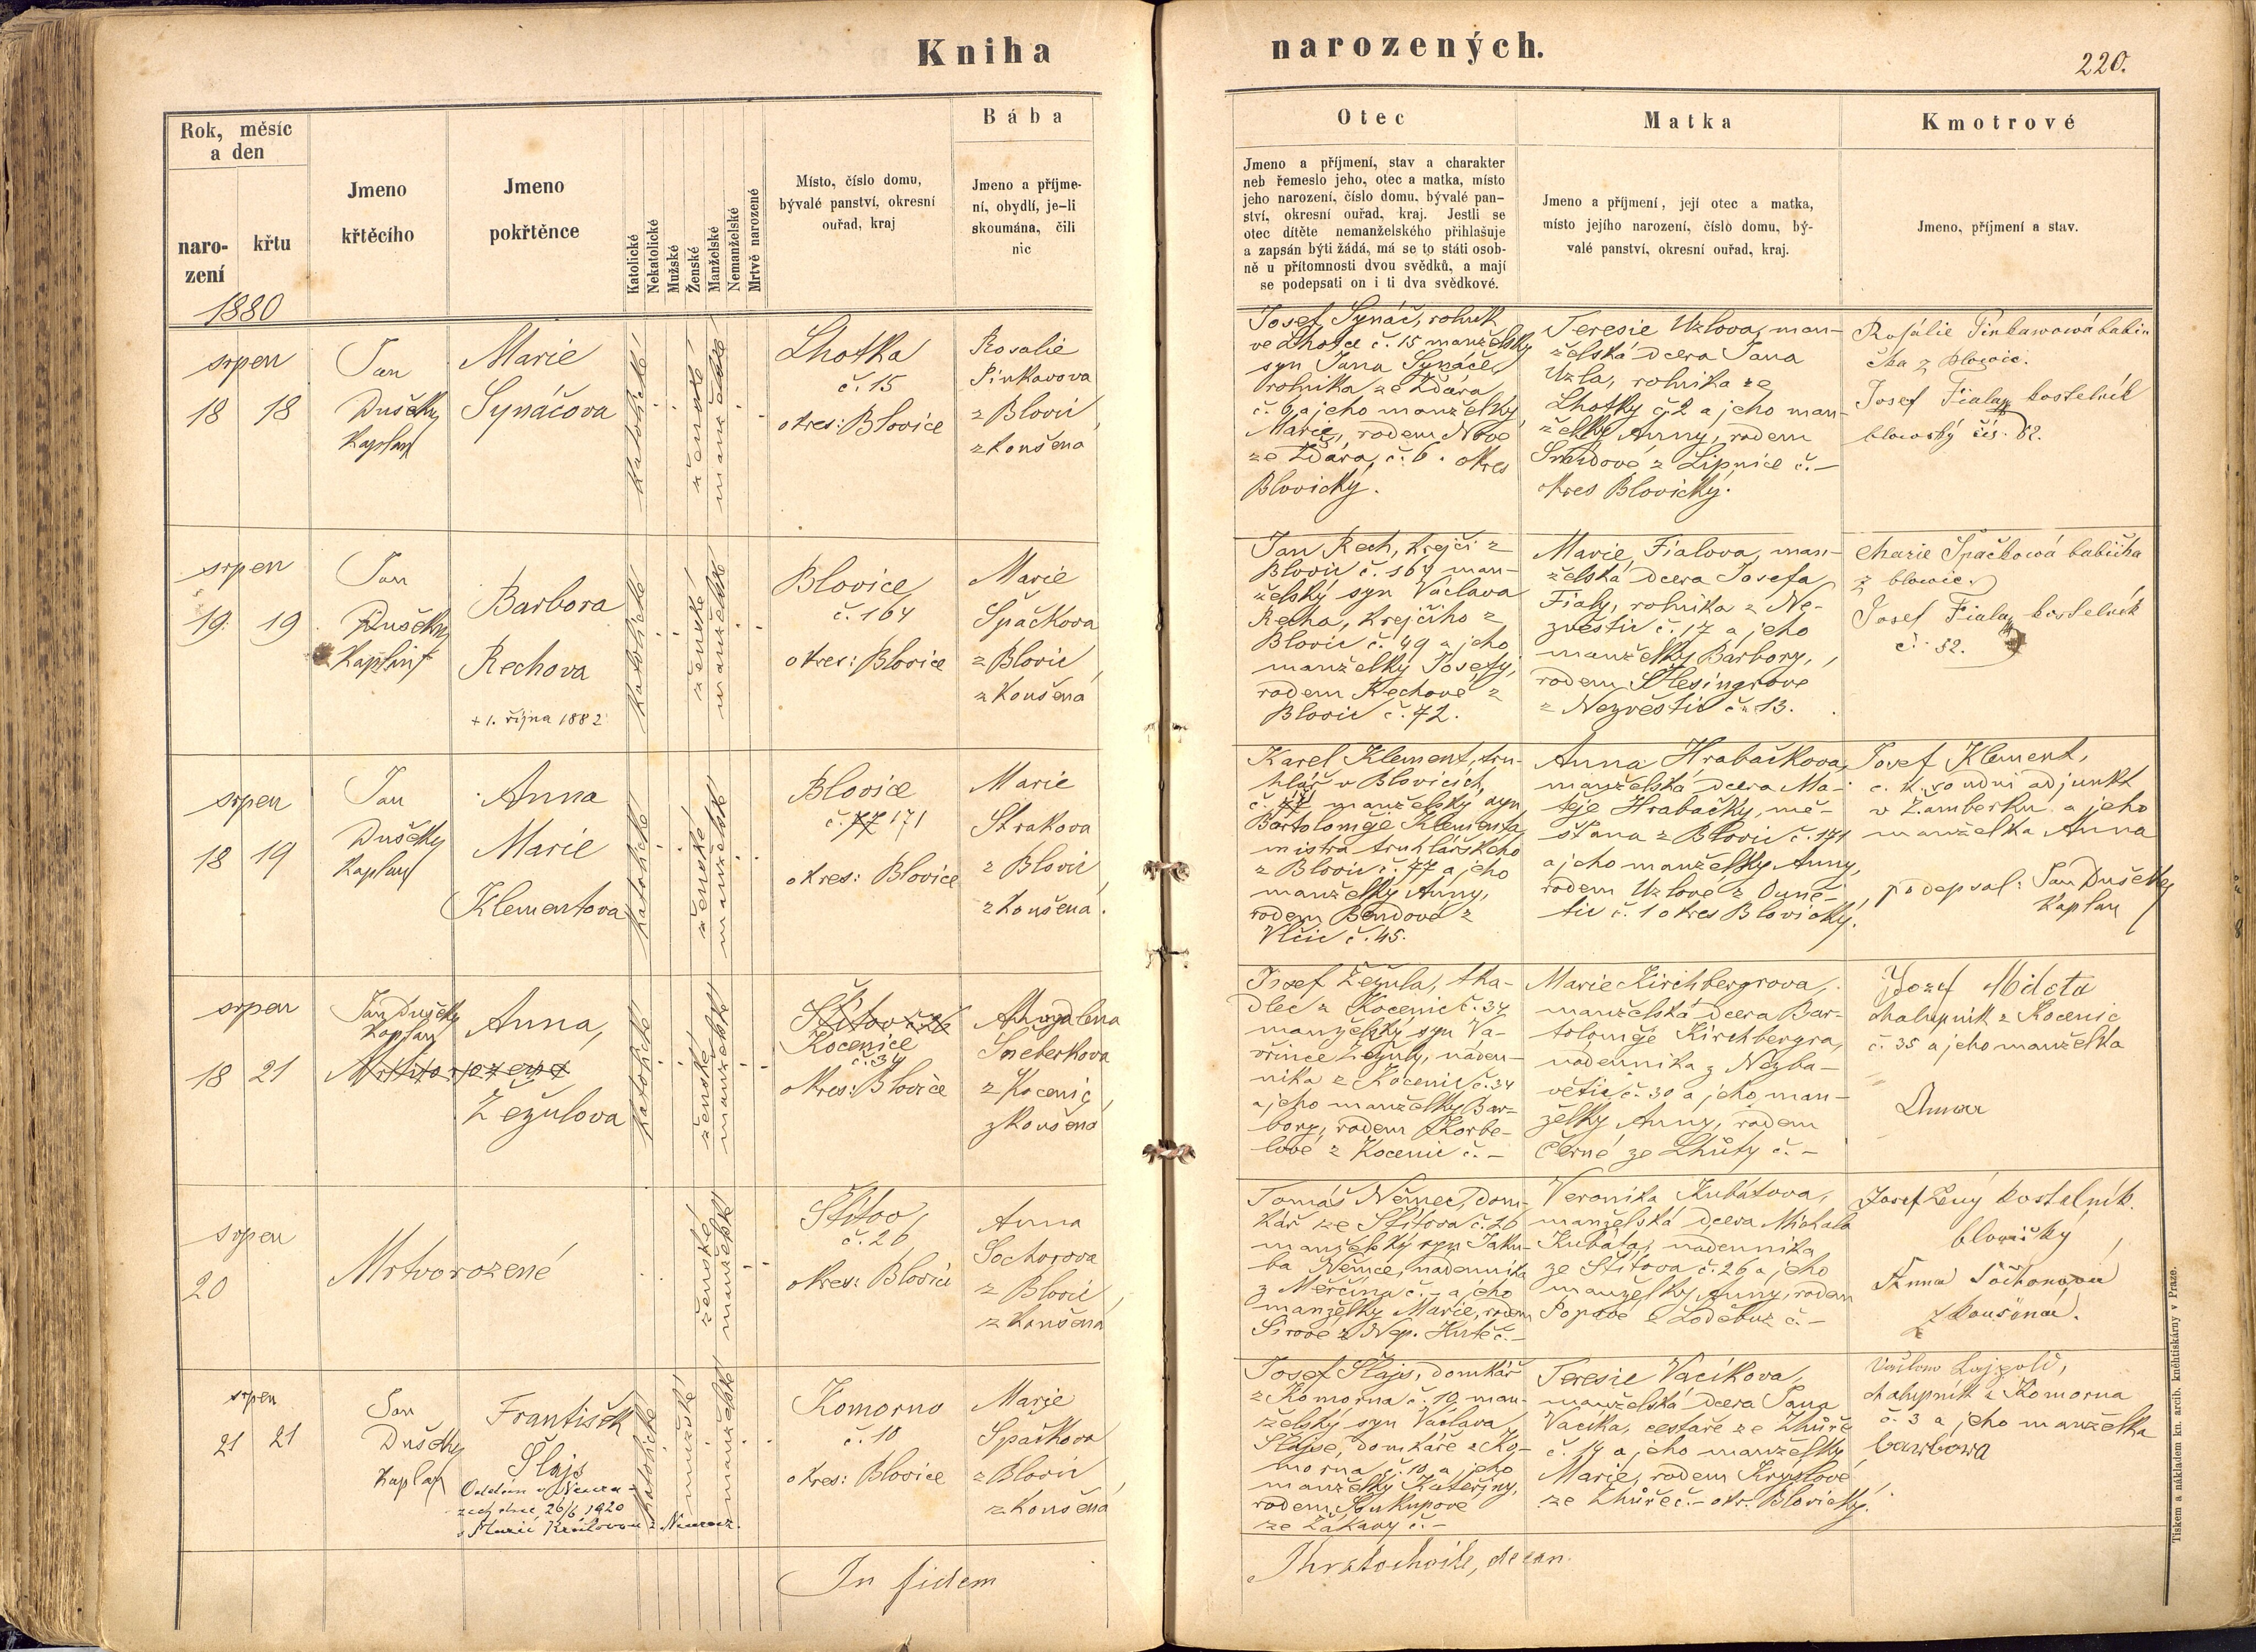 Kniha narozených.
220.
Rok, měsíc
a den
naro-
zení
křtu
1880
Jmeno
křtěcího
Jmeno
pokřtěnce
Katolické
Nekatolické
Mužské
Ženské
Manželské
Nemanželské
Mrtvě narozené
Místo, číslo domu,
bývalé panství, okresní
ouřad, kraj
Bába
Jmeno a příjme-
ní, obydlí, je-li
skoumána, čili
nic
Otec
Jmeno a příjmení, stav a charakter
neb řemeslo jeho, otec a matka, místo
jeho narození, číslo domu, bývalé pan-
ství, okresní ouřad, kraj. Jestli se
otec dítěte nemanželského přihlašuje
a zapsán býti žádá, má se to státi osob-
ně u přítomnosti dvou svědků, a mají
se podepsati on i ti dva svědkové.
Matka
Jmeno a příjmení, její otec a matka,
místo jejího narození, číslo domu, bý-
valé panství, okresní ouřad, kraj.
Kmotrové
Jmeno, příjmení a stav.
srpen
18 18
Jan
Dušek
Kaplan
Marie
Synáčova
katolické
ženské
manželské
Lhotka
č. 15
okres: Blovice
Rosalie
Pinkavova
z Blovic
zkoušena
Josef Synáč, rolník
ve Lhotce č. 15 manželský
syn Jana Synáče,
rolníka ze Ždára
č. 9 a jeho manželky
Marie, rodem Nové
ze Ždára, č. 6. okres
Blovický.
Teresie Uzlova, man-
želská dcera Jana
Uzla, rolníka ze
Lhotky č. 2 a jeho man-
želky Anny, rodem
z Lipnice č. –
okres Blovický.
Rosálie Pinkawowá babi
čka z Blowic.
Josef Fiala kostelník
blowský čís. 82.
srpen
19. 19
Jan
Dušek
Kaplan
Barbora
Rechova
+ 1. října 1882
katolické
ženské
manželské
Blovice
č. 164
okres: Blovice
Marie
Špačkova
z Blovic
zkoušena
Jan Rech, krejčí z
Blovic č. 164 man-
želský syn Václava
Recha, krejčího z
Blovic č. 49 a jeho
manželky Josefy,
rodem Rechové z
Blovic č. 72.
Marie Fialova, man-
želská dcera Josefa
Fialy, rolníka z Ne-
zvěstic č. 17 a jeho
manželky Barbory,
rodem Šlesingrove
z Nezvěstic č. 13.
Marie Špačkowá babička
z blowic.
Josef Fiala kostelník
č. 82.
srpen
18 19
Jan
Dušek
Kaplan
Anna
Marie
Klementova
katolické
ženské
manželské
Blovice
č. 77 171
okres: Blovice
Marie
Strakova
z Blovic
zkoušena.
Karel Klement, tru-
hlář v Blovicích,
č. 77 manželský syn
Bartoloměje Klementa,
mistra truhlářského
z Blovic č. 77 a jeho
manželky Anny,
rodem Bendové z
Vlčic č. 45.
Anna Hrabačkova,
manželská dcera Ma-
těje Hrabačky, mě-
šťana z Blovic č. 171
a jeho manželky Anny,
rodem Uzlove z Ouně-
tic č. 1 okres Blovický.
Josef Klement,
c. k. soudní adjunkt
v Žamberku a jeho
manželka Anna
podepsal: Jan Dušek
Kaplan
srpen
18 21
Jan Dušek
Kaplan
Mrtvorozené
Anna,
Žežulova
katolické
ženské
manželské
Kocenice
č. 34
okres: Blovice
Magdalena
Sneberkova
z Kocenic
zkoušená
Josef Žežula, tka-
dlec z Kocenic č. 34
manželský syn Va-
vřince Žežuly, náden-
níka z Kocenic č. 34
a jeho manželky Bar-
bory, rodem Škorbe-
lové z Kocenic č. –
Marie Kirchbergrova,
manželská dcera Bar-
toloměje Kirchbergra,
nadenníka z Nezba-
větic č. 30 a jeho man-
želky Anny, rodem
Černé ze Lhůty č. –
Jozef Mileta
chalupník z Kocenic
č. 35 a jeho manželka
Anna
srpen
20
Mrtvorozené
ženské
manželské
Štítov
č. 26
okres: Blovice
Anna
Sochorova
z Blovic
zkoušena
Tomáš Němec, dom-
kář ze Štítova č. 26
manželský syn Jaku-
ba Němce, nadenníka
z Měrčína č. – a jeho
manželky Marie, rodem
Sirové z Nep. Hutě č. –
Veronika Kubátova,
manželská dcera Michala
Kubáta, nadenníka
ze Štítova č. 26 a jeho
manželky Anny, rodem
Popové z č. –
Josef Lený kostelník
blowický
Anna
zkoušena.
srpen
21 21
Jan
Dušek
Kaplan
František
Šlajs
Oddán v
dne 26/6 1920
s Marií Královou z
katolické
mužské
manželské
Komorno
č. 10
okres: Blovice
Marie
Špačkova
z Blovic
zkoušená
Josef Šlajs, domkář
z Komorna č. 10 man-
želský syn Václava
Šlajse, domkáře z Ko-
morna č. 10 a jeho
manželky Kateřiny,
rodem Soukupové
ze Žákavy č. –
Teresie Vacikova,
manželská dcera Jana
Vacika, cestáře ze Zhůře
č. 14 a jeho manželky
Marie, rodem
ze Zhůře č. – okr. Blovický.
Václaw Lajpold,
chalupník z Komorna
č. 3 a jeho manželka
barbora
In fidem
Khratochvíle, decan.
Tiskem a nákladem kn. arcib. kněhtiskárny v Praze.